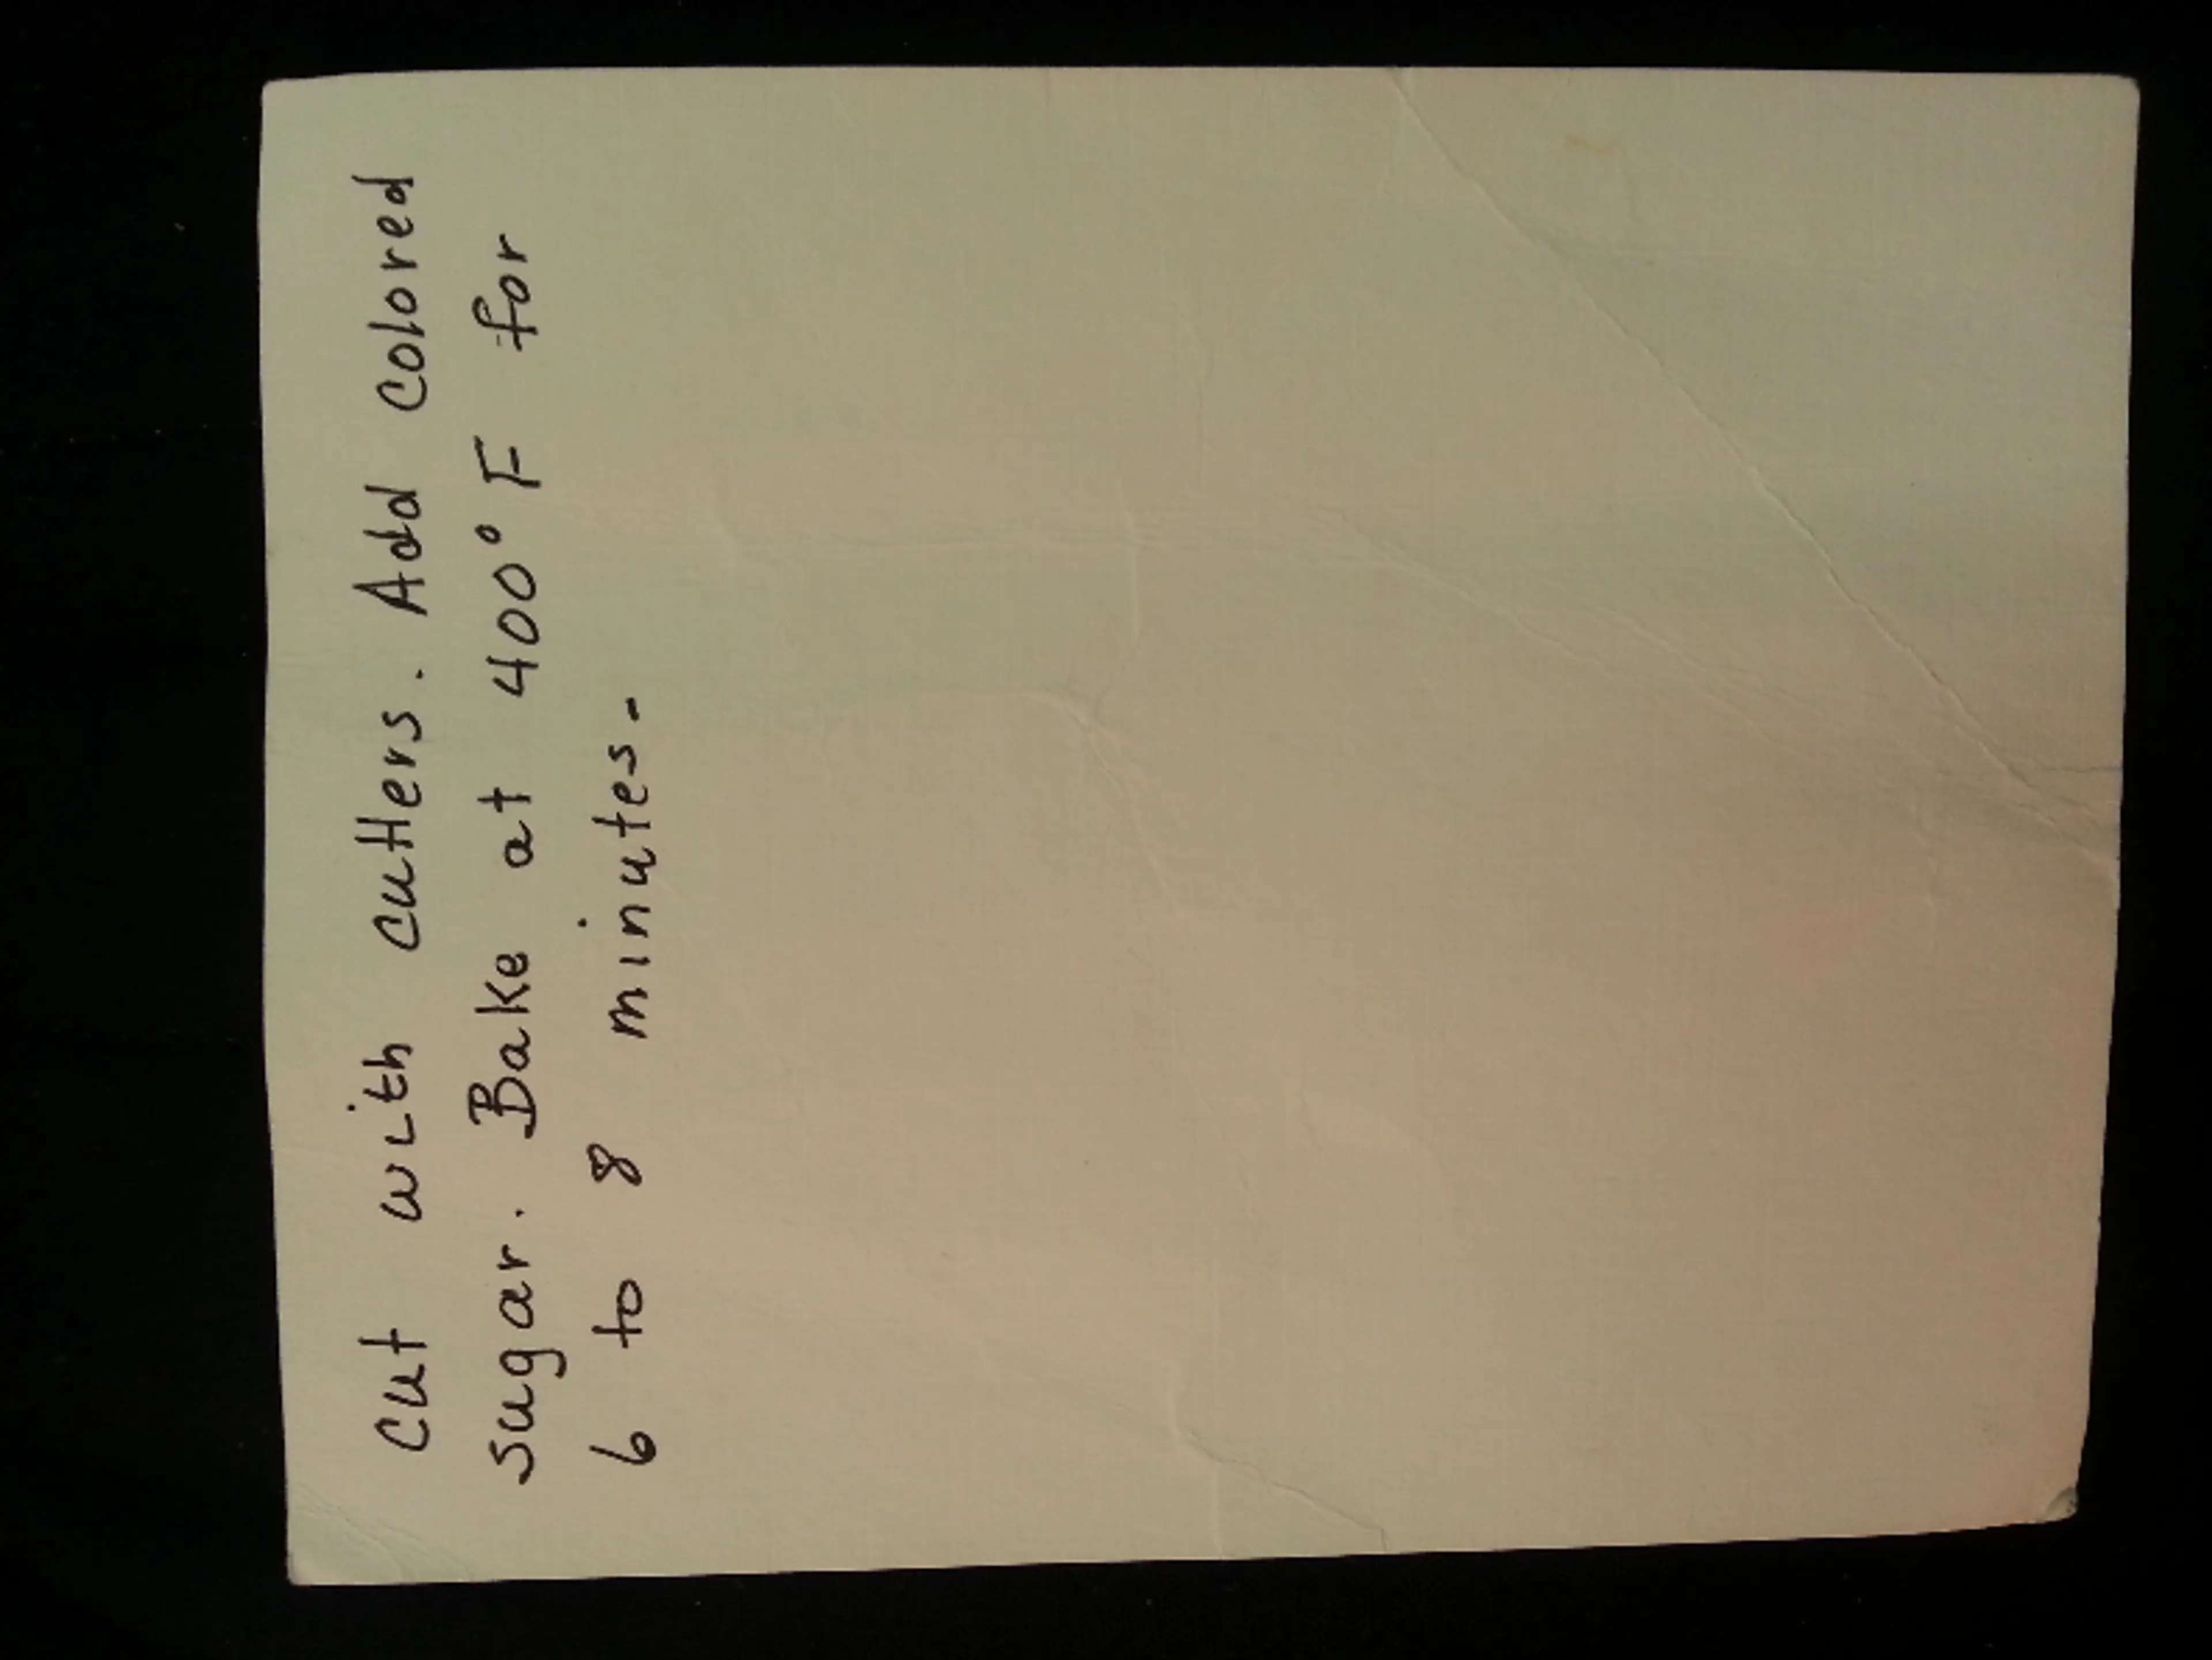 Cut with cutters. Add colored
sugar. Bake at 400° F for
6 to 8 minutes.